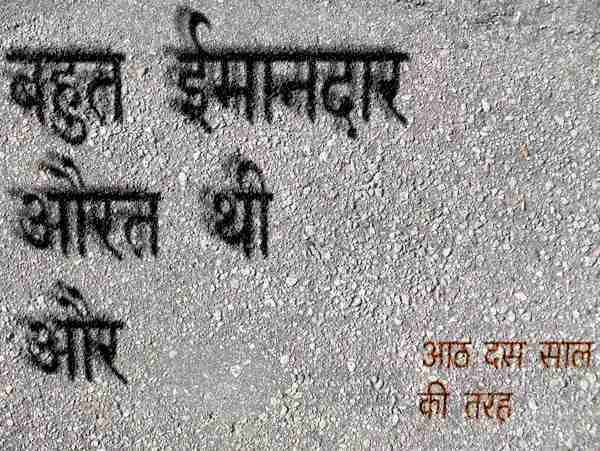 बहुत ईमानदार
औरत थी
और
आठ दस साल
की तरह